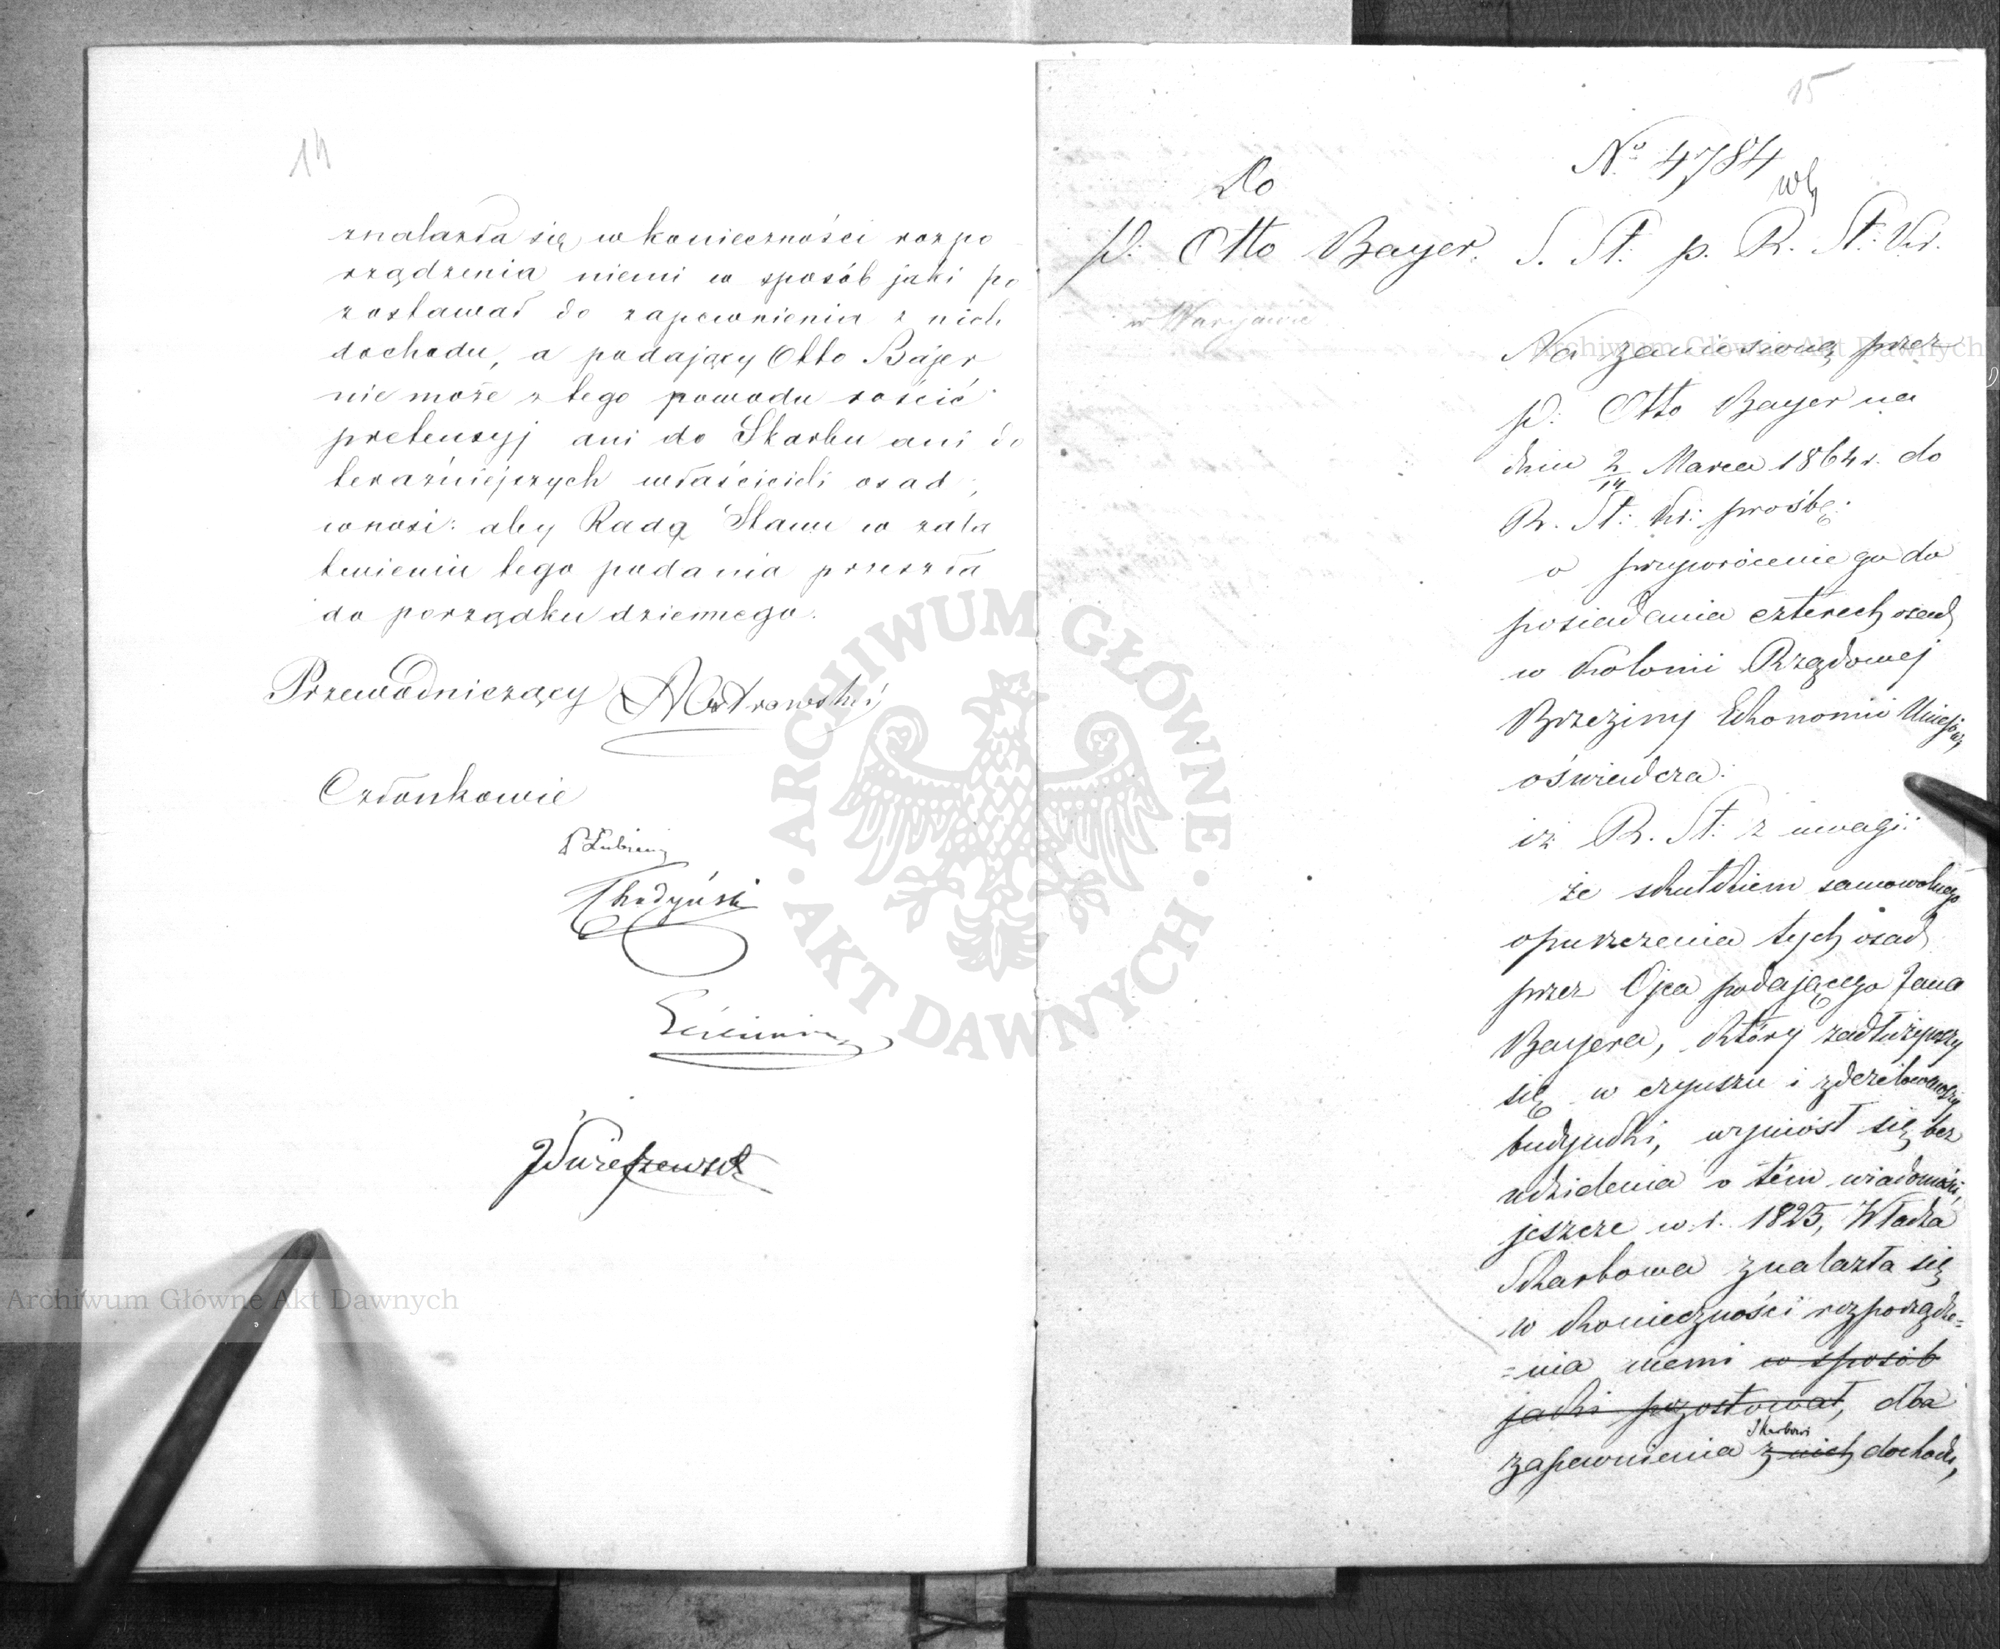 14
znalazła się w konieczności rozpo
rządzenia niemi w sposób jaki po
zostawał do zapewnienia z nich
dochodu, a podający Otto Bajer
nie może z tego powodu rościć
pretensyj ani do Skarbu ani do
teraźniejszych właścicieli osad,
wnosi: aby Rada Stanu w zała
twieniu tego podania przeszła
do porządku dziennego.
Przewodniczący AOstrowski
Członkowie
P Łubieński
Chodyński
15
№ 4784
Do
P. Otto Bayer. S. St. p. R. St. Kr.
w Warszawie
Na zaniesioną przez
P. Otto Bayer na
dniu 2/14 Marca 1864 r. do
R. St: Kr: prośbę:
o przywrócenie go do
posiadania czterech osad
w Kolonii Rządowej
Brzeziny Ekonomii Uniejów
oświadcza:
iż R. St: z uwagi:
że skutkiem samowolnego
opuszczenia tych osad
przez Ojca podającego Jana
Bayera, który zadłużywszy
się w czynszu i zdezelowawszy
budynki, wyniósł się bez
udzielenia o tém wiadomości,
jeszcze w r. 1825, Władza
Skarbowa znalazła się
w konieczności rozporządze=
=nia niemi w sposób
jaki pozostował, dla
zapewnienia Skarbowi z nich dochodu,
Archiwum Główne Akt Dawnych
Archiwum Główne Akt Dawnych
ARCHIWUM GŁÓWNE • AKT DAWNYCH •